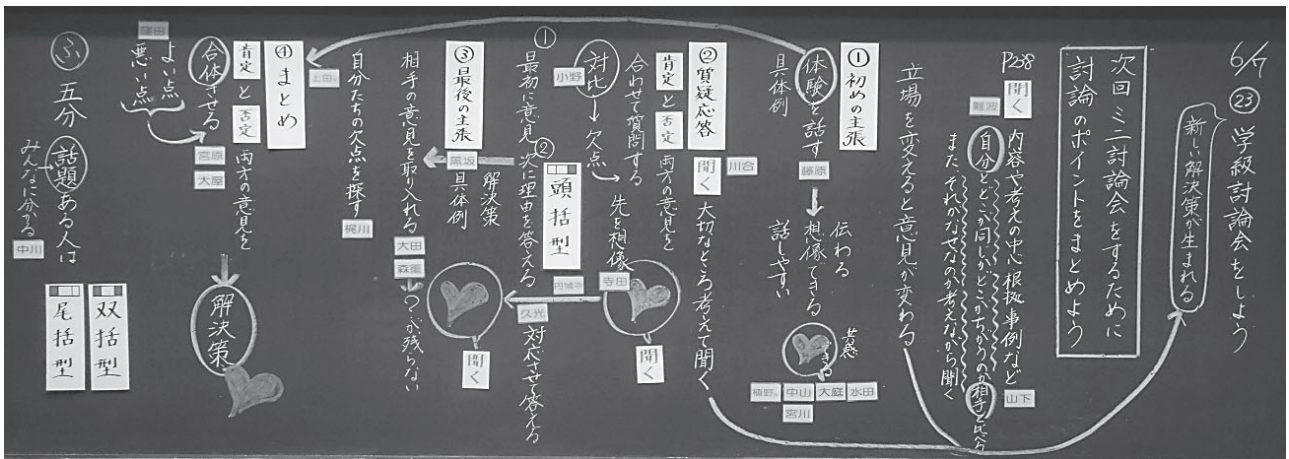 6/7 ㉓ 学級討論会をしよう
新しい解決策が生まれる
次回ミニ討論会をするために
討論のポイントをまとめよう
P258 聞く 内容や考えの中心 根拠事例など
難波
山下
自分とどこが同じかどこがちがうのか相手と比べる
またそれがなぜなのか考えながら聞く
立場を変えると意見が変わる
① 初めの主張
体験を話す
藤原
具体例
伝わる
想像できる
話しやすい
共感
植野 中山 大庭 水田
宮川
② 質疑応答
聞く 大切なところ考えて聞く
川合
肯定と否定 両方の意見を
合わせて質問する
対比→欠点
小野
先を想像
寺田
聞く
① 最初に意見 ② 次に理由を答える
頭括型
内城寺
久光
対応させて答える
③ 最後の主張
黒坂
解決策
具体例
聞く
相手の意見を取り入れる
大田
森重
?が残らない
自分たちの欠点を探す
梶川
④ まとめ
上田
肯定と否定 両方の意見を
合体させる
宮原
大屋
解決策
よい点
悪い点
窪田
ふ 五分 話題ある人は
みんなに分かる
中川
双括型
尾括型